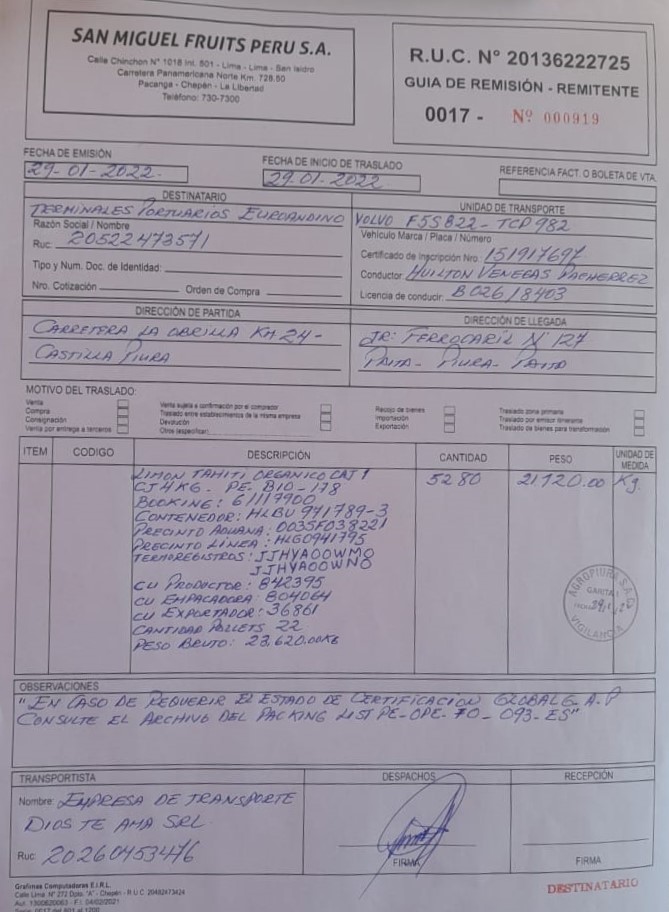 SAN MIGUEL FRUITS PERU S.A.
Calle Chinchon N° 1018 Int. 501 - Lima - Lima - San Isidro
Carretera Panamericana Norte Km. 728.50
Pacanga - Chepén - La Libertad
Teléfono: 730-7300
R.U.C. N° 20136222725
GUIA DE REMISIÓN - REMITENTE
0017 - Nº 000919
FECHA DE EMISIÓN
29-01-2022.
FECHA DE INICIO DE TRASLADO
29-01-2022
REFERENCIA FACT. O BOLETA DE VTA.
DESTINATARIO
TERMINALES PORTUARIOS EUROANDINO
Razón Social / Nombre
Ruc: 20522473571
Tipo y Num. Doc. de Identidad:
Nro. Cotización Orden de Compra
UNIDAD DE TRANSPORTE
VOLVO F5S822 - TCP 982
Vehículo Marca / Placa / Número
Certificado de Inscripción Nro: 151917697
Conductor: HUILTON VENEGAS PACHERREZ
Licencia de conducir: B02618403
DIRECCIÓN DE PARTIDA
CARRETERA LA OBRILLA KM 24 -
CASTILLA PIURA
DIRECCIÓN DE LLEGADA
JR: FERROCARIL N° 127
PAITA - PIURA - PAITA
MOTIVO DEL TRASLADO:
Venta
Compra
Consignación
Venta por entrega a terceros
Venta sujeta a confirmación por el comprador
Traslado entre establecimientos de la misma empresa
Devolución
Otros (especificar)
Recojo de bienes
Importación
Exportación
Traslado zona primaria
Traslado por emisor itinerante
Traslado de bienes para transformación
ITEM CODIGO DESCRIPCIÓN CANTIDAD PESO UNIDAD DE MEDIDA
LIMON TAHITI ORGANICO CAJ 1 5280 21,120.00 Kg.
CJ 4KG. PE. BIO - 178
BOOKING: 61117900
CONTENEDOR: HLBU 971789-3
PRECINTO ADUANA: 0035F038221
PRECINTO LÍNEA: HLG0941795
TERMOREGISTROS: JJHYA00WM0
JJHYA00WN0
CU PRODUCTOR: 842395
CU EMPACADORA: 804064
CU EXPORTADOR: 36861
CANTIDAD PALLETS 22
PESO BRUTO: 23,620.00KG
AGROPIURA S.A.C
GARITA 1
VIGILANCIA
OBSERVACIONES
"EN CASO DE REQUERIR EL ESTADO DE CERTIFICACION GLOBALG.A.P
CONSULTE EL ARCHIVO DEL PACKING LIST PE-OPE-FO-093-ES"
TRANSPORTISTA
Nombre: EMPRESA DE TRANSPORTE
DIOS TE AMA SRL.
Ruc: 20260453476
DESPACHOS
FIRMA
RECEPCIÓN
FIRMA
Grafimas Computadores E.I.R.L.
Calle Lima N° 272 Dpto. "A" - Chepén - R.U.C. 20482473424
Aut. 1300620063 - F.I. 04/02/2021
Serie 0017 del 801 al 1200
DESTINATARIO